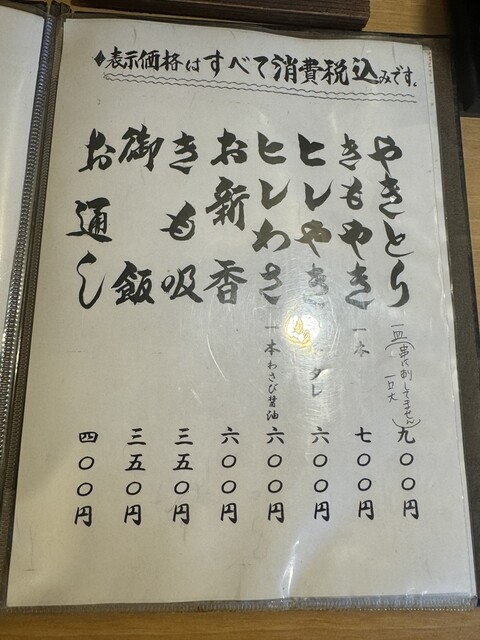 ♦表示価格はすべて消費税込みです。
やきとり 一皿(串に刺してません) 一口大 九〇〇円
きもやき 一本 七〇〇円
ヒレやき タレ 六〇〇円
ヒレわさ 一本わさび醤油 六〇〇円
お新香 六〇〇円
きも吸 三五〇円
御飯 三五〇円
お通し 四〇〇円